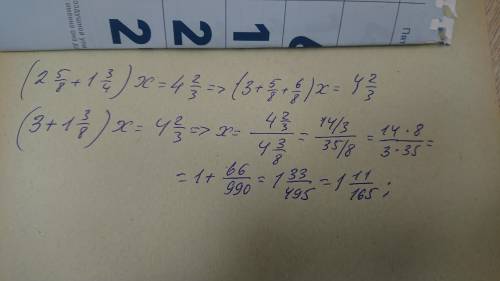 2 2 6
(2 5/8 + 1 3/4) x = 4 2/3 => (3 + 5/8 + 6/8) x = 4 2/3
(3 + 1 3/8) x = 4 2/3 => x = (4 2/3)/(4 3/8) = (14/3)/(35/8) = (14 · 8)/(3 · 35) =
= 1 + 66/990 = 1 33/495 = 1 11/165 ;